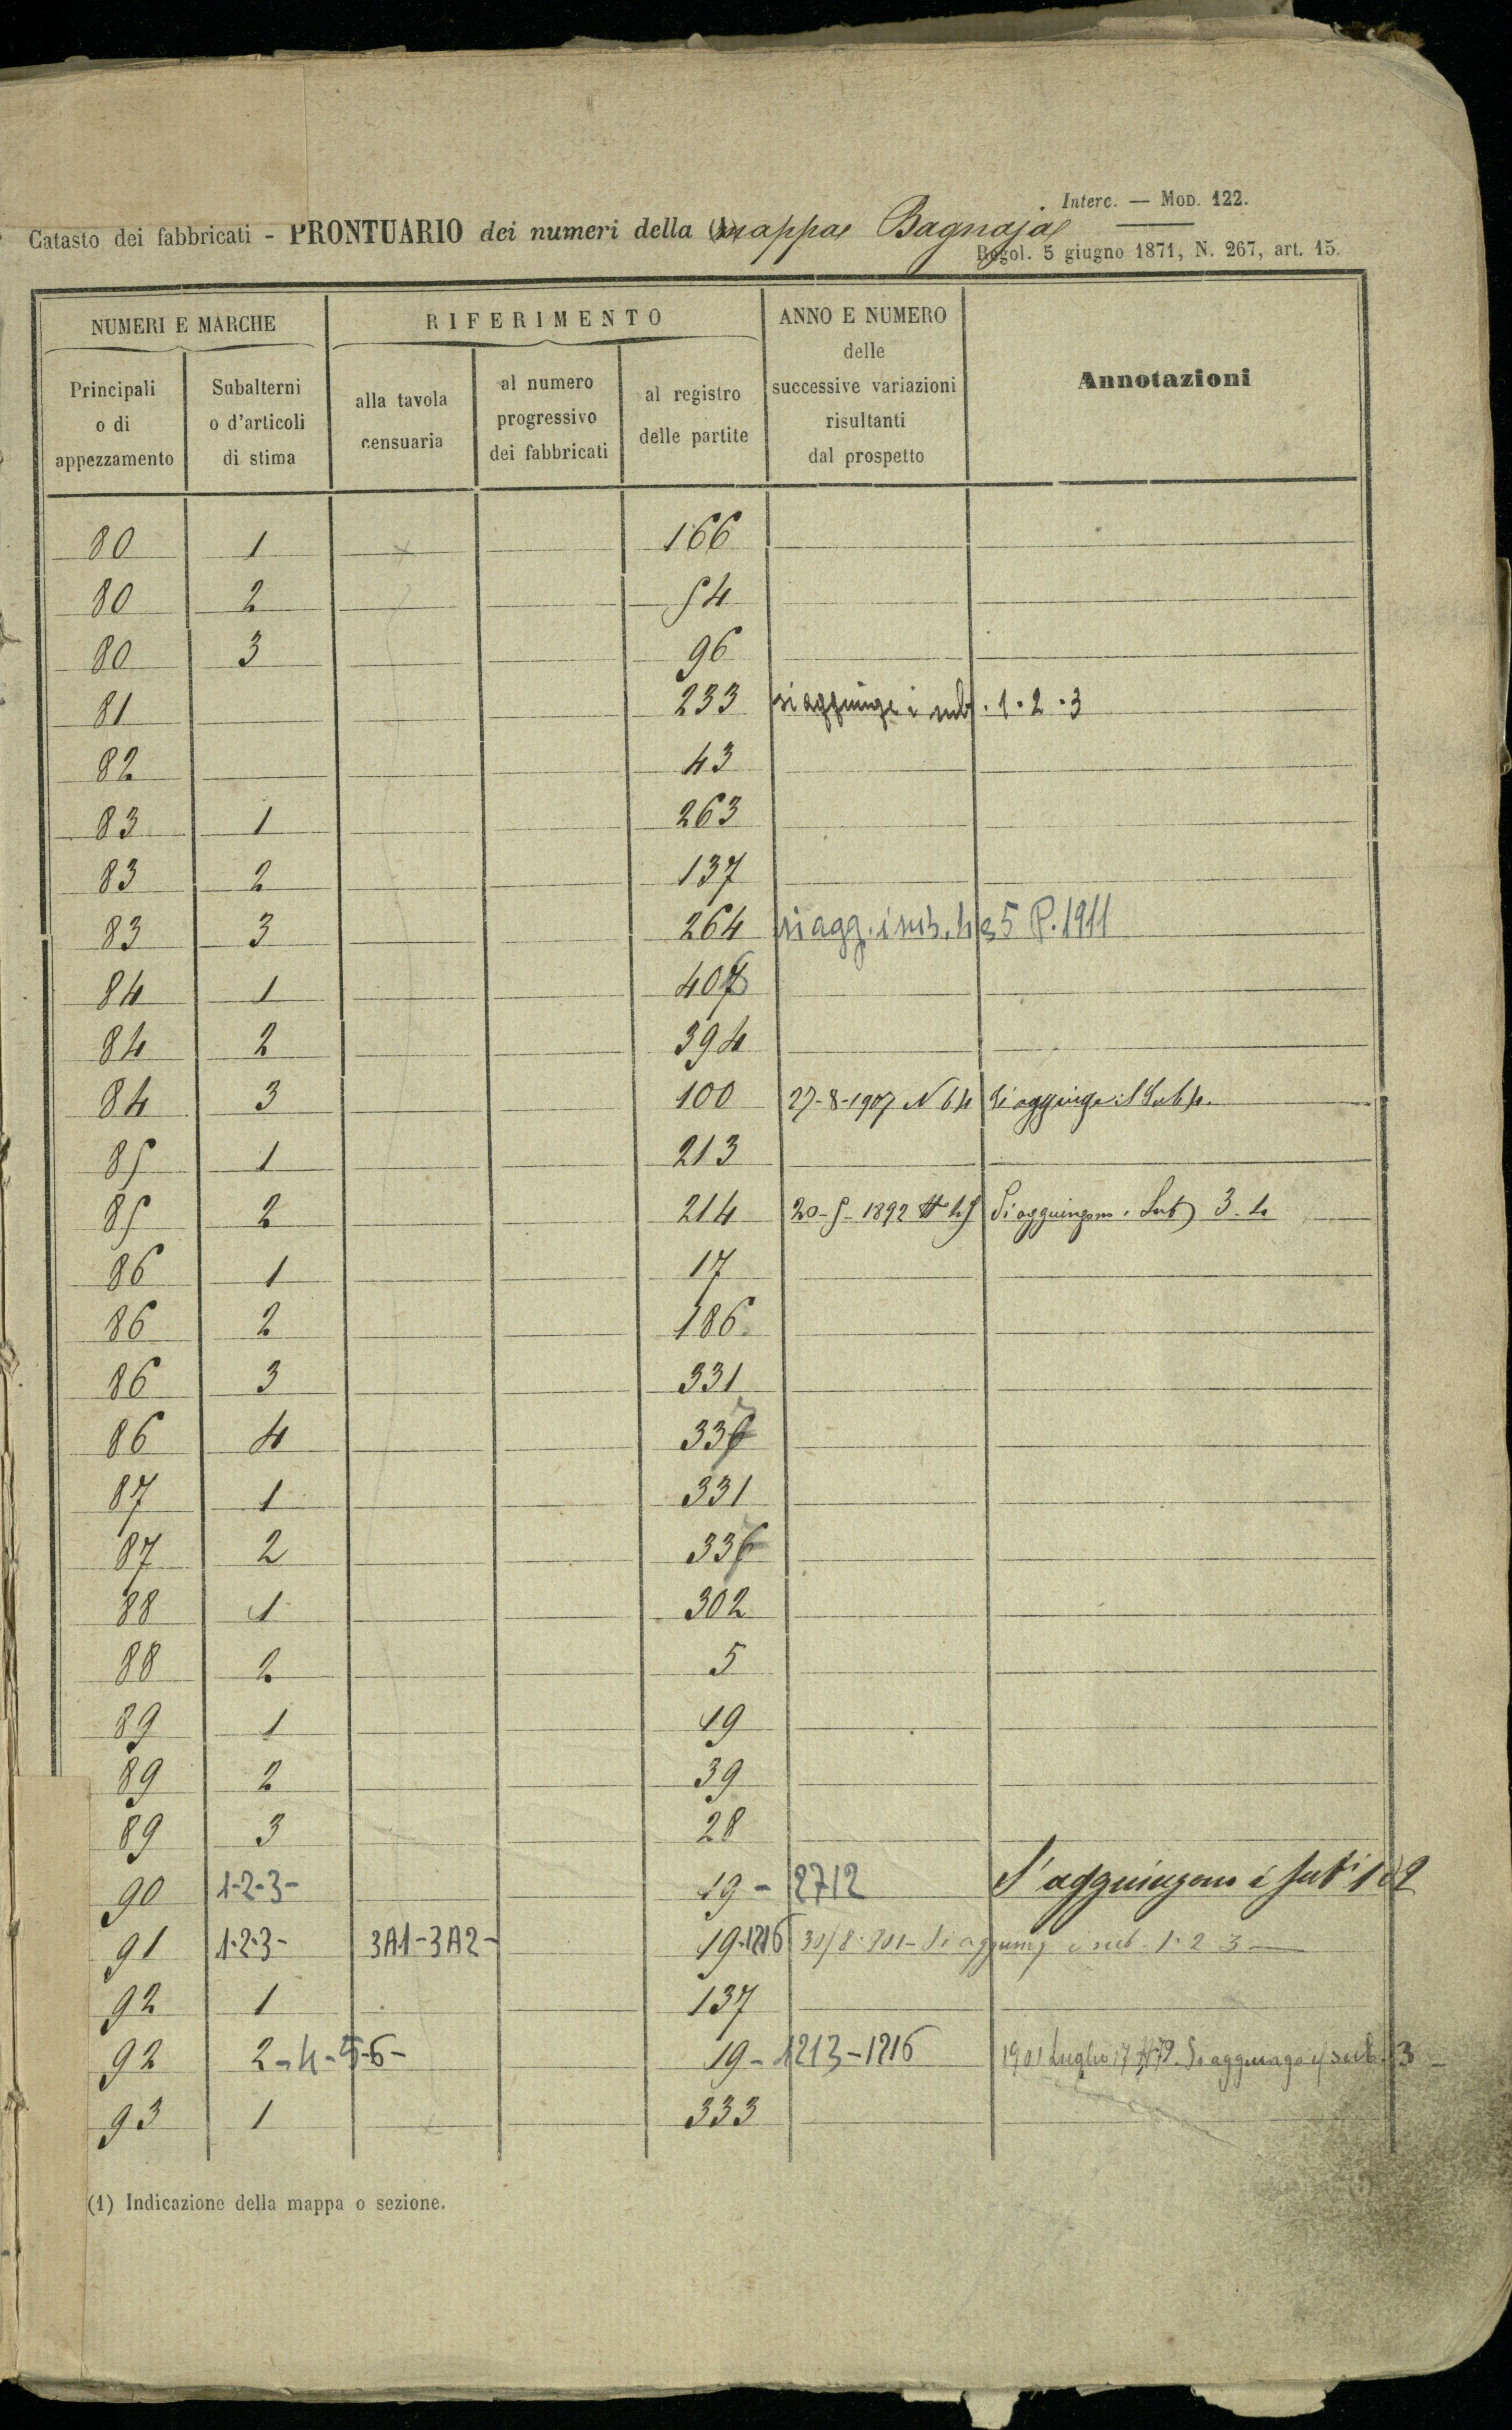 Interc. — MOD. 122.
Catasto dei fabbricati - PRONTUARIO dei numeri della (1) mappa Bagnaja
Regol. 5 giugno 1871, N. 267, art. 15.
NUMERI E MARCHE
RIFERIMENTO
ANNO E NUMERO delle successive variazioni risultanti dal prospetto
Annotazioni
Principali o di appezzamento
Subalterni o d'articoli di stima
alla tavola censuaria
al numero progressivo dei fabbricati
al registro delle partite
80 1 166
80 2 54
80 3 96
81 233 si aggiunge i sub. 1·2·3
82 43
83 1 263
83 2 137
83 3 264 si agg. i sub. 4 e 5 P. 1911
84 1 406
84 2 394
84 3 100 27-8-1907 N 64 Si aggiunge il Sub 4.
85 1 213
85 2 214 20-5-1892 Si aggiungono i Sub 3-4
86 1 17
86 2 186
86 3 331
86 4 337
87 1 331
87 2 337
88 1 302
88 2 5
89 1 19
89 2 39
89 3 28
90 1-2-3- 19 - 2712 S'aggiungono i sub i 1 e 2
91 1·2·3- 3A1-3A2- 19-1216 30/8-901- Si aggiung i sub. 1·2·3—
92 1 137
92 2-4-5-6- 19-1213-1216 1901 Luglio 17 Si aggiunge sub. 3-
93 1 333
(1) Indicazione della mappa o sezione.